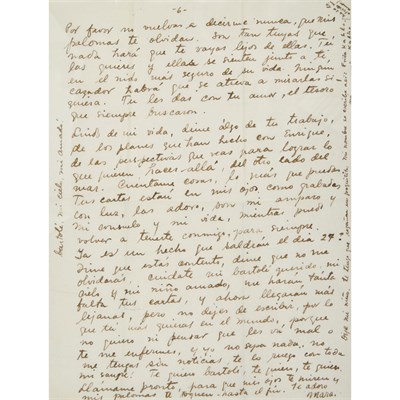 -6-
Por favor no vuelvas a decirme nunca, que mis
palomas te olvidan. Son tan tuyas que,
nada hará que te vayas lejos de ellas. Tu
las quieres y ellas se sienten junto a ti
en el nido más seguro de su vida. Ningún
cazador habrá que se atreva a mirarlas si-
quiera. Tu les das con tu amor, el tesoro
que siempre buscaron.
Lindo de mi vida, dime algo de tu trabajo,
de los planes que han hecho con Enrique,
de las perspectivas que veas para lograr lo
que quieren hacer allá, del otro lado del
mar. Cuéntame cosas, lo más que puedas.
Tus cartas están en mis ojos como grabadas
con luz, las adoro, son mi amparo y
mi consuelo y mi vida, mientras puedo
volver a tenerte conmigo, para siempre.
Ya es un hecho que saldrán el día 24.
Dime que estás contento, dime que no me
olvidarás, cuídate mi Bartolí querido, mi
cielo y mi niño amado, me harán tanta
falta tus cartas, y ahora llegarán más
lejanas, pero no dejes de escribir, por lo
que tú más quieras en el mundo, porque
no quiero ni pensar que les vá mal o
te me enfermes, y yo no sepa nada, no
me tengas sin noticias, te lo ruego con toda
mi sangre. Te quiero Bartolí, te quiero, te quiero.
Llámame pronto, para que mis ojos te miren y
mis palomas te hasta el fin. Te adoro
Mara.
Bartolí, mi cielo, mi amado